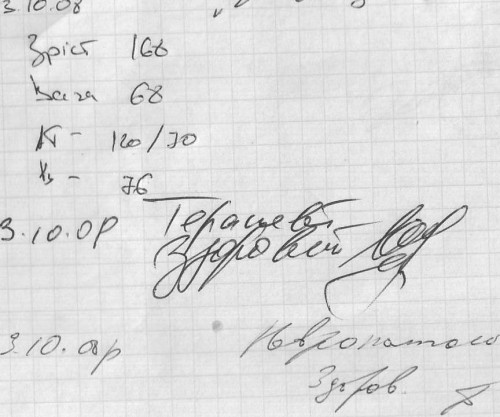 3.10.08
Зріст 168
Вага 68
АТ - 120/70
Ps - 76
3.10.08 Терапевт
Здоровий
3.10.08р Невропатолог
Здоров.